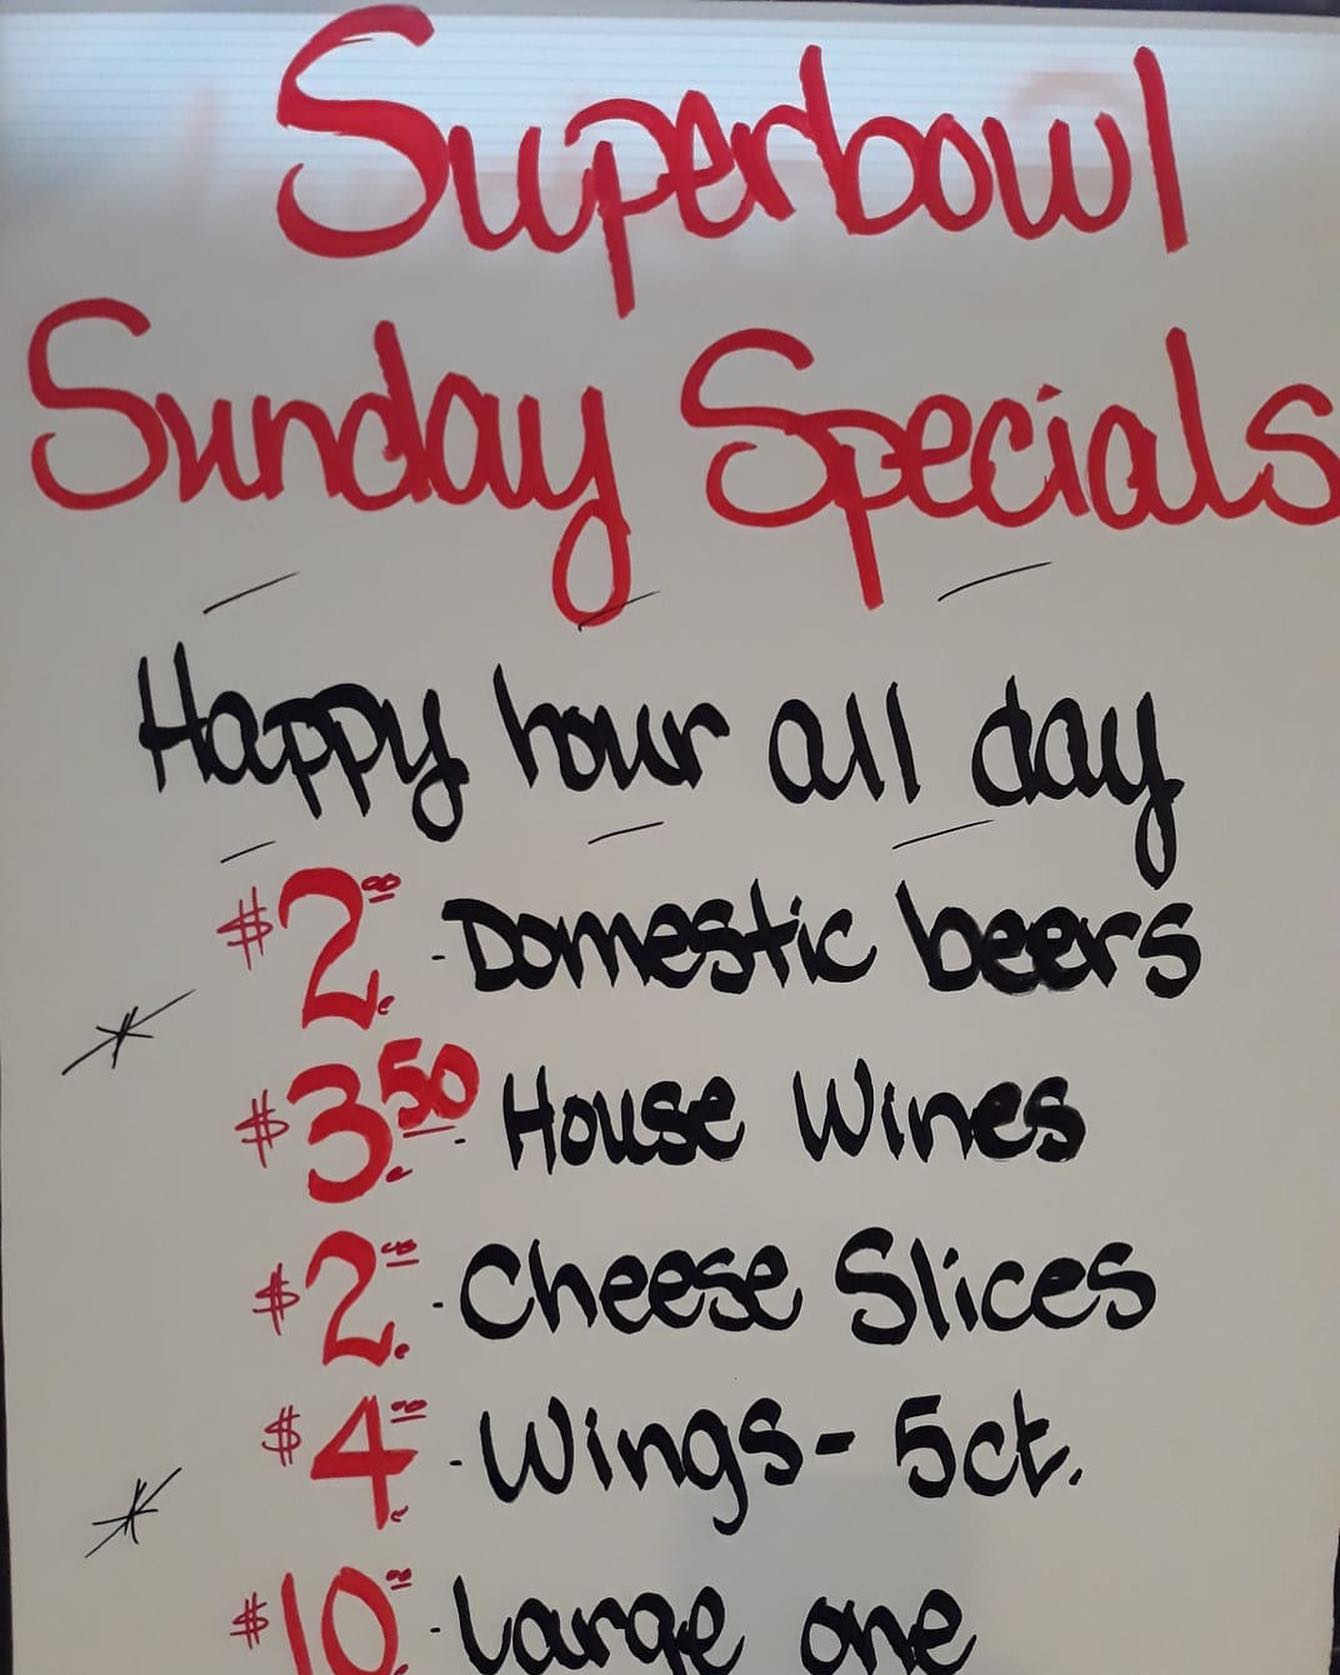 Superbowl
Sunday Specials
Happy hour all day
$2.00 - Domestic beers
$3.50 - House Wines
$2.00 - Cheese Slices
$4.00 - Wings - 5ct.
$10.00 - Large one